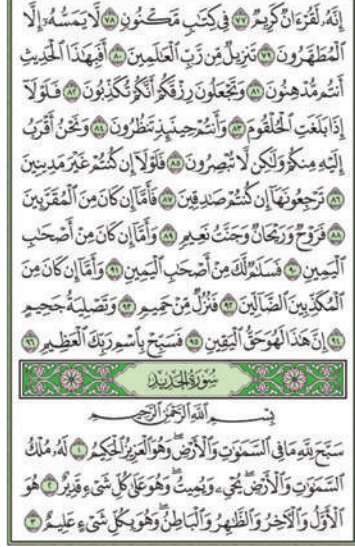 إِنَّهُۥ لَقُرْءَانٌ كَرِيمٌ ٧٧ فِى كِتَٰبٍ مَّكْنُونٍ ٧٨ لَّا يَمَسُّهُۥٓ إِلَّا
ٱلْمُطَهَّرُونَ ٧٩ تَنزِيلٌ مِّن رَّبِّ ٱلْعَٰلَمِينَ ٨٠ أَفَبِهَٰذَا ٱلْحَدِيثِ
أَنتُم مُّدْهِنُونَ ٨١ وَتَجْعَلُونَ رِزْقَكُمْ أَنَّكُمْ تُكَذِّبُونَ ٨٢ فَلَوْلَآ
إِذَا بَلَغَتِ ٱلْحُلْقُومَ ٨٣ وَأَنتُمْ حِينَئِذٍ تَنظُرُونَ ٨٤ وَنَحْنُ أَقْرَبُ
إِلَيْهِ مِنكُمْ وَلَٰكِن لَّا تُبْصِرُونَ ٨٥ فَلَوْلَآ إِن كُنتُمْ غَيْرَ مَدِينِينَ
٨٦ تَرْجِعُونَهَآ إِن كُنتُمْ صَٰدِقِينَ ٨٧ فَأَمَّآ إِن كَانَ مِنَ ٱلْمُقَرَّبِينَ
٨٨ فَرَوْحٌ وَرَيْحَانٌ وَجَنَّتُ نَعِيمٍ ٨٩ وَأَمَّآ إِن كَانَ مِنْ أَصْحَٰبِ
ٱلْيَمِينِ ٩٠ فَسَلَٰمٌ لَّكَ مِنْ أَصْحَٰبِ ٱلْيَمِينِ ٩١ وَأَمَّآ إِن كَانَ مِنَ
ٱلْمُكَذِّبِينَ ٱلضَّآلِّينَ ٩٢ فَنُزُلٌ مِّنْ حَمِيمٍ ٩٣ وَتَصْلِيَةُ جَحِيمٍ
٩٤ إِنَّ هَٰذَا لَهُوَ حَقُّ ٱلْيَقِينِ ٩٥ فَسَبِّحْ بِٱسْمِ رَبِّكَ ٱلْعَظِيمِ ٩٦
سُورَةُ الحَدِيدِ
بِسْمِ ٱللَّهِ ٱلرَّحْمَٰنِ ٱلرَّحِيمِ
سَبَّحَ لِلَّهِ مَا فِى ٱلسَّمَٰوَٰتِ وَٱلْأَرْضِۖ وَهُوَ ٱلْعَزِيزُ ٱلْحَكِيمُ ١ لَهُۥ مُلْكُ
ٱلسَّمَٰوَٰتِ وَٱلْأَرْضِۖ يُحْىِۦ وَيُمِيتُۖ وَهُوَ عَلَىٰ كُلِّ شَىْءٍ قَدِيرٌ ٢ هُوَ
ٱلْأَوَّلُ وَٱلْءَاخِرُ وَٱلظَّٰهِرُ وَٱلْبَاطِنُۖ وَهُوَ بِكُلِّ شَىْءٍ عَلِيمٌ ٣